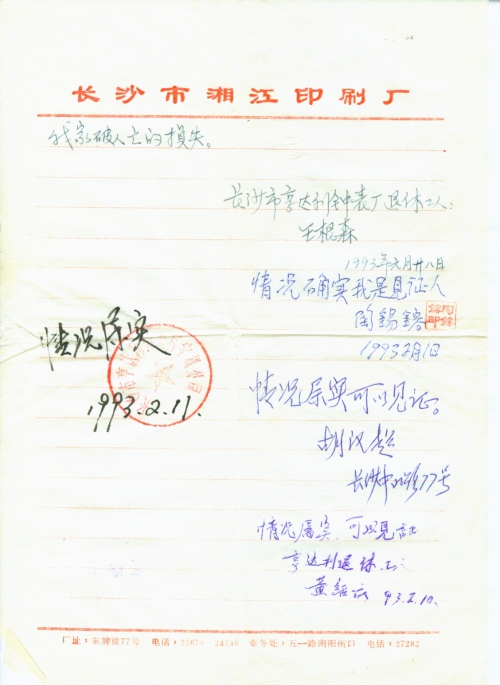 长沙市湘江印刷厂
我家破人亡的损失。
长沙市亨达利钟表厂退休工人:
王根森
1993年元月廿八日
情况确实我是见证人
陶锡镕
1993 2月1日
情况属实
1993.2.11.
情况属实可以见证。
胡汉超
长沙市 77号
情况属实,可以见证
亨达利退休
黄绍 93.2.10.
厂址:东牌楼77号 电话: 24148 业务处:五一路南阳街口 电话:27282